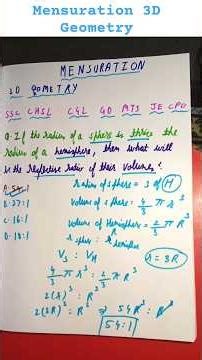 Mensuration 3D
Geometry
MENSURATION
3D GOMETRY
SSC CHSL CGL GD MTS JE CPO
Q. If the radius of a sphere is thrice the
radius of a hemisphere, then what will
be the respective ratio of their volumes?
A. 54:1
B. 27:1
C. 16:1
D. 18:1
radius of sphere = 3 of H
volume of sphere = 4/3 π r³
volume of Hemisphere = 2/3 π R³
r sphere : R hemisphere
r = 3R
Vs : VH
4/3 π r³ : 2/3 π R³
2(r)³ : R³
2(3R)³ : R³ ⇒ 54R³ : R³
54:1